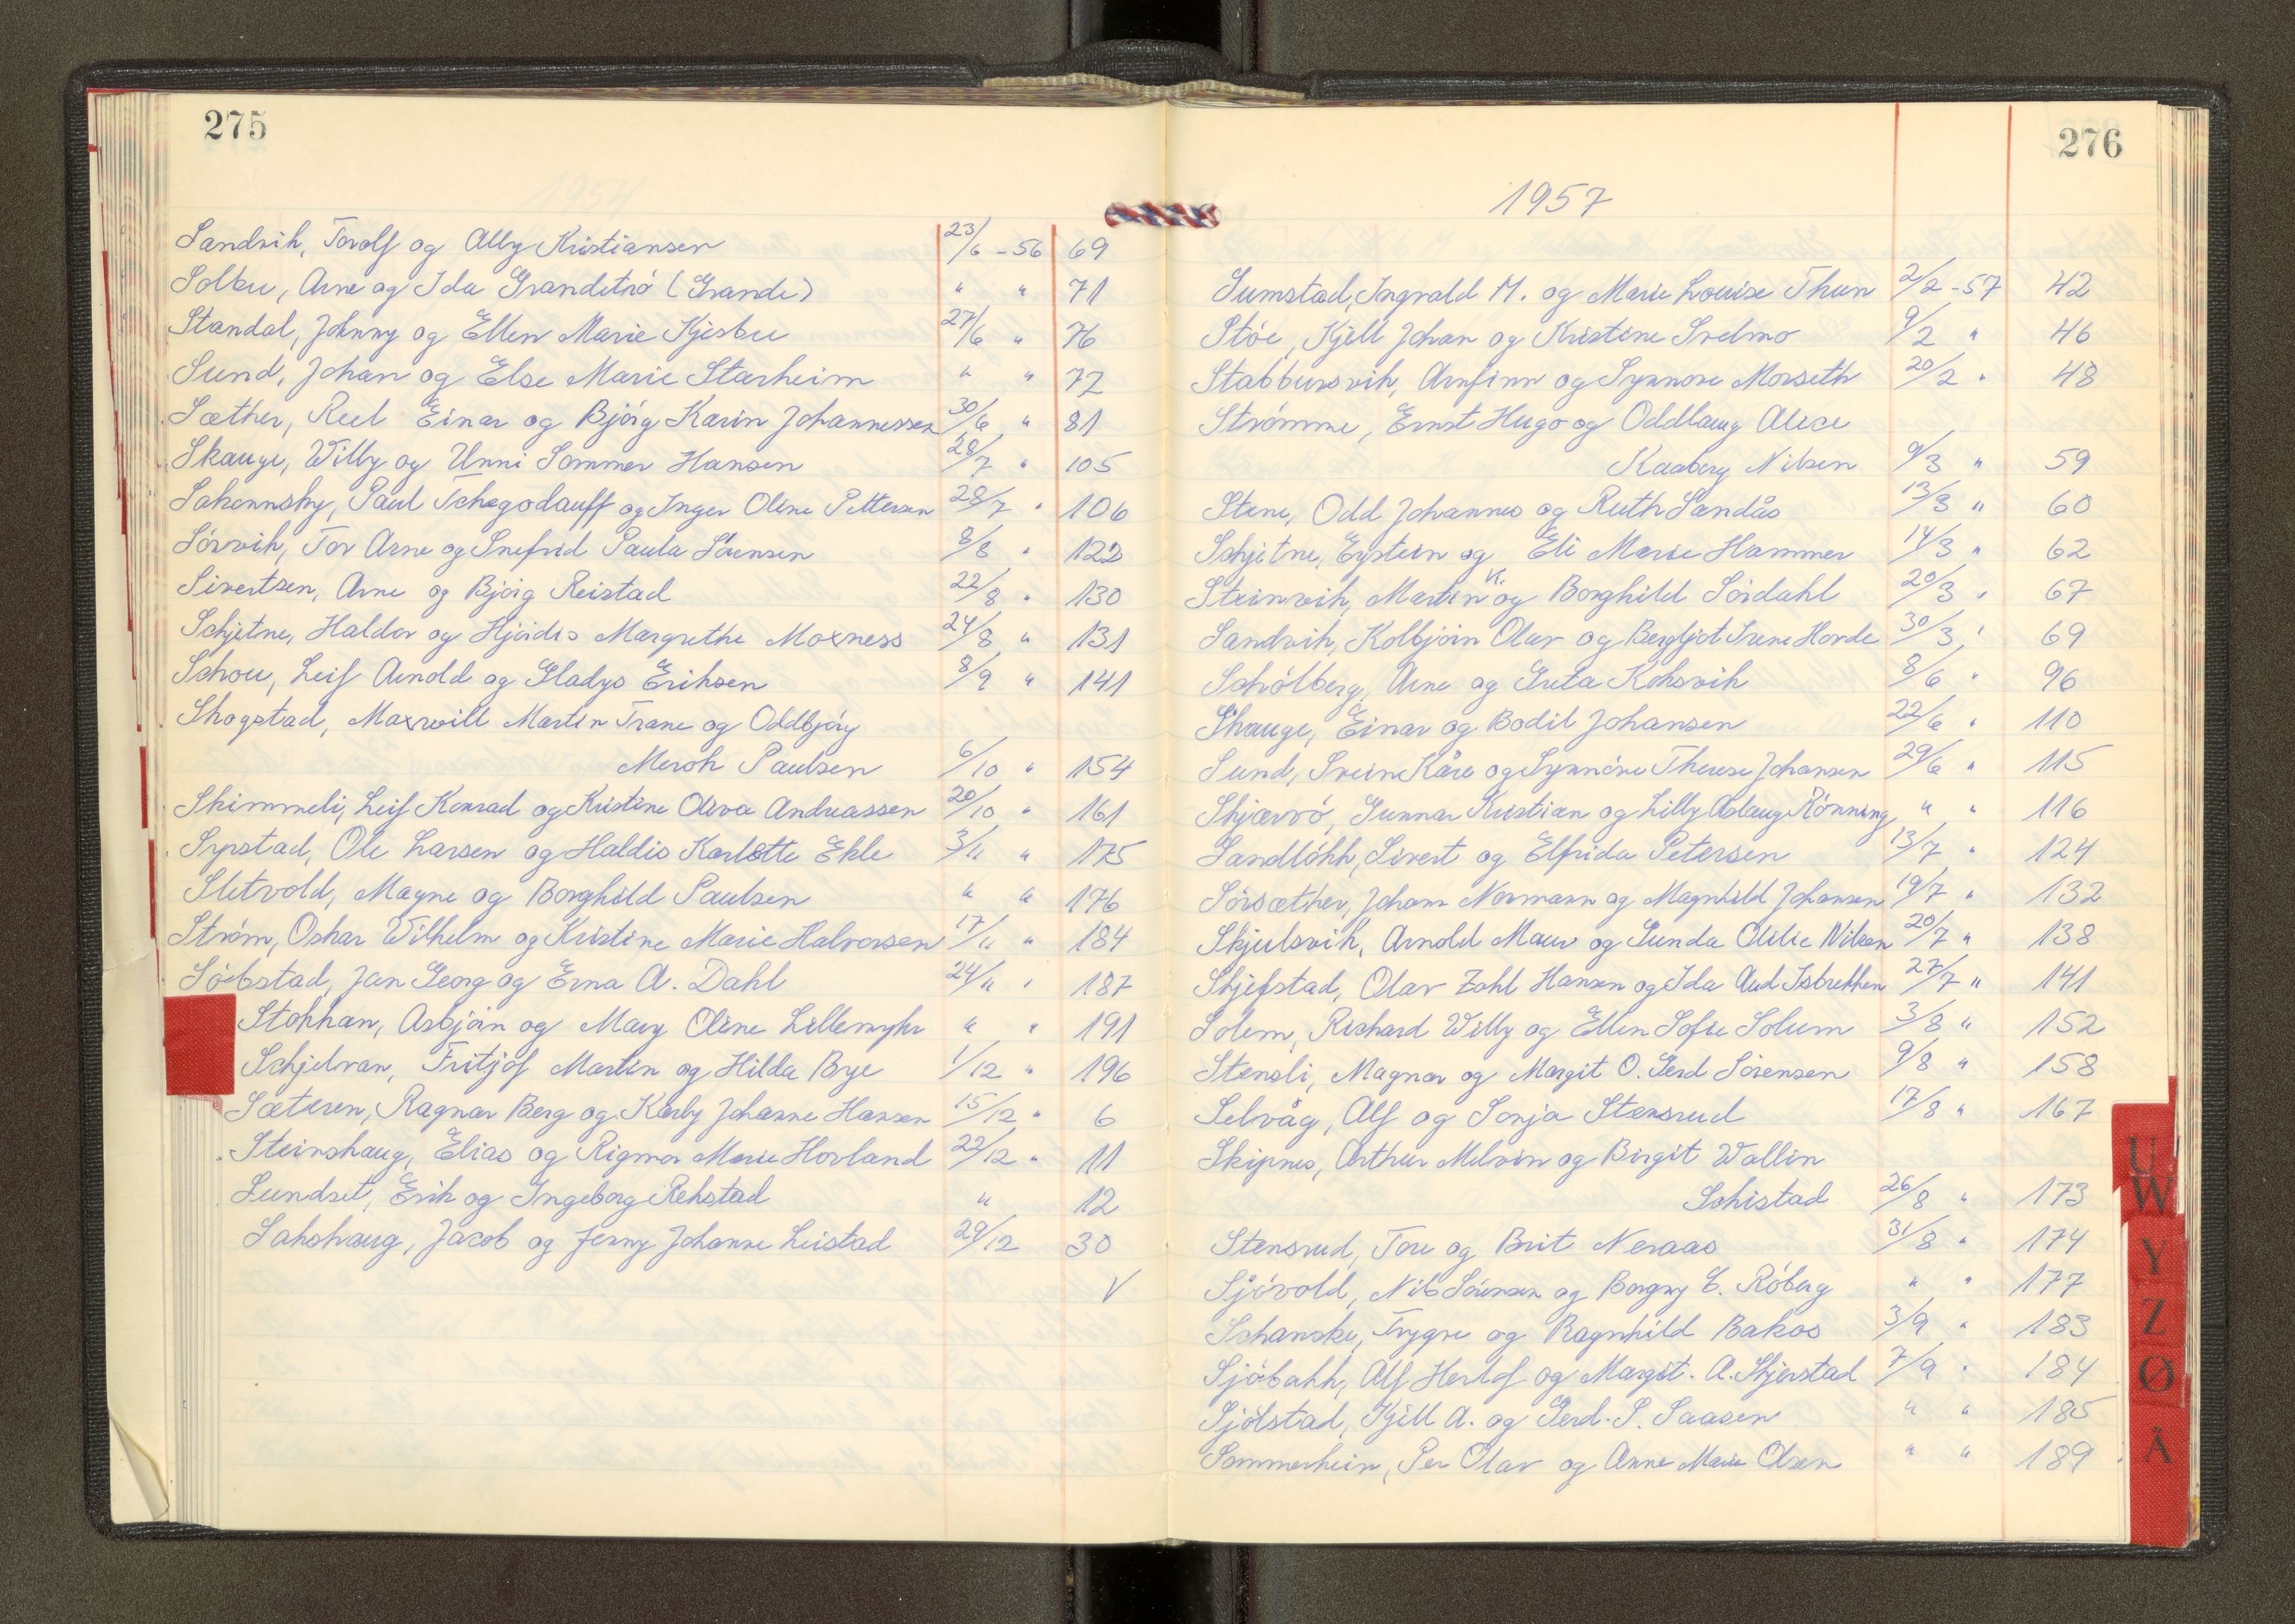 275
Sandvik, Torolf og Ally Kristiansen 23/6 - 56 69
Solbu, Arne og Ida Grandetrö (Grande) " " 71
Standal, Johnny og Ellen Marie Kjesbu 27/6 " 76
Sund, Johan og Else Marie Starheim " " 72
Sæther, Reel Einar og Bjørg Karin Johannessen 30/6 " 81
Skauge, Willy og Unni Sommer Hansen 28/7 " 105
Sakonnsky, Paul Tchegodauff og Inger Oline Pettersen 28/7 " 106
Sörvik, Tor Arne og Snefrid Paula Sörensen 8/8 " 122
Sivertsen, Arne og Bjórg Reistad 22/8 " 130
Schjetne, Haldor og Hjördis Margrethe Moxness 24/8 " 131
Schou, Leif Arnold og Gladys Eriksen 8/9 " 141
Skogstad, Maxwill Martin Trane og Oddbjörg
Merok Paulsen 6/10 " 154
Skimmeli, Leif Konrad og Kristine Oliva Andreassen 20/10 " 161
Sypstad, Ole Larsen og Haldis Karlotte Ekle 3/11 " 175
Sletvold, Magne og Borghild Paulsen " " 176
Ström, Oskar Wilhelm og Kristine Marie Halvorsen 17/11 " 184
Söbstad, Jan Georg og Erna A. Dahl 24/11 " 187
Stokkan, Asbjörn og Mary Oline Lillemyhr " " 191
Schjelvan, Fritjof Martin og Hilda Bye 1/12 " 196
Sæteren, Ragnar Berg og Karly Johanne Hansen 15/12 " 6
Steinshaug, Elias og Rigmor Marie Hovland 22/12 " 11
Sundset, Erik og Ingeborg Rekstad " 12
Sakshaug, Jacob og Jenny Johanne Leistad 29/12 30
V
276
1957
Sumstad, Ingvald M. og Marie Louise Thun 2/2 - 57 42
Stöe, Kjell Johan og Kristine Svelmo 9/2 " 46
Stabbursvik, Arnfinn og Synnöve Morseth 20/2 " 48
Strömme, Ernst Hugo og Oddlaug Alise
Kaaberg Nilsen 9/3 " 59
Stene, Odd Johannes og Ruth Sandås 13/3 " 60
Schjetne, Eystein og Eli Marie Hammer 14/3 " 62
Steinvik, Martin K. og Borghild Sördahl 20/3 " 67
Sandvik, Kolbjörn Olav og Bergljot Irene Horde 30/3 " 69
Schölberg, Arne og Greta Koksvik 8/6 " 96
Skauge, Einar og Bodil Johansen 22/6 " 110
Sund, Svein Kåre og Synnöve Therese Johansen 29/6 " 115
Skjærvö, Gunnar Kristian og Lilly Aslaug Rönning " " 116
Sandlökk, Sivert og Elfrida Petersen 13/7 " 124
Sörsæther, Johan Normann og Magnhild Johansen 19/7 " 132
Skjulsvik, Arnold Maur og Gunda Otilie Nilsen 20/7 " 138
Skjefstad, Olav Zahl Hansen og Ida Aud Isbrekken 27/7 " 141
Solem, Richard Willy og Ellen Sofie Solum 3/8 " 152
Stensli, Magnar og Margit O. Gerd Sörensen 9/8 " 158
Selvåg, Alf og Sonja Stensrud 17/8 " 167
Skipnes, Arthur Melvin og Birgit Wallin
Schistad 26/8 " 173
Stensrud, Tore og Brit Neraas 31/8 " 174
Sjövold, Nils Sörensen og Borgny E. Röberg " " 177
Schanske, Trygve og Ragnhild Bakos 3/9 " 183
Sjöbakk, Alf Herlof og Margit. A. Skjerstad 7/9 " 184
Sjölstad, Kjell A. og Gerd. P. Saasen " " 185
Sommerhein, Per Olav og Anne Marie Olsen " " 189
U
W
Y
Z
Ø
Å